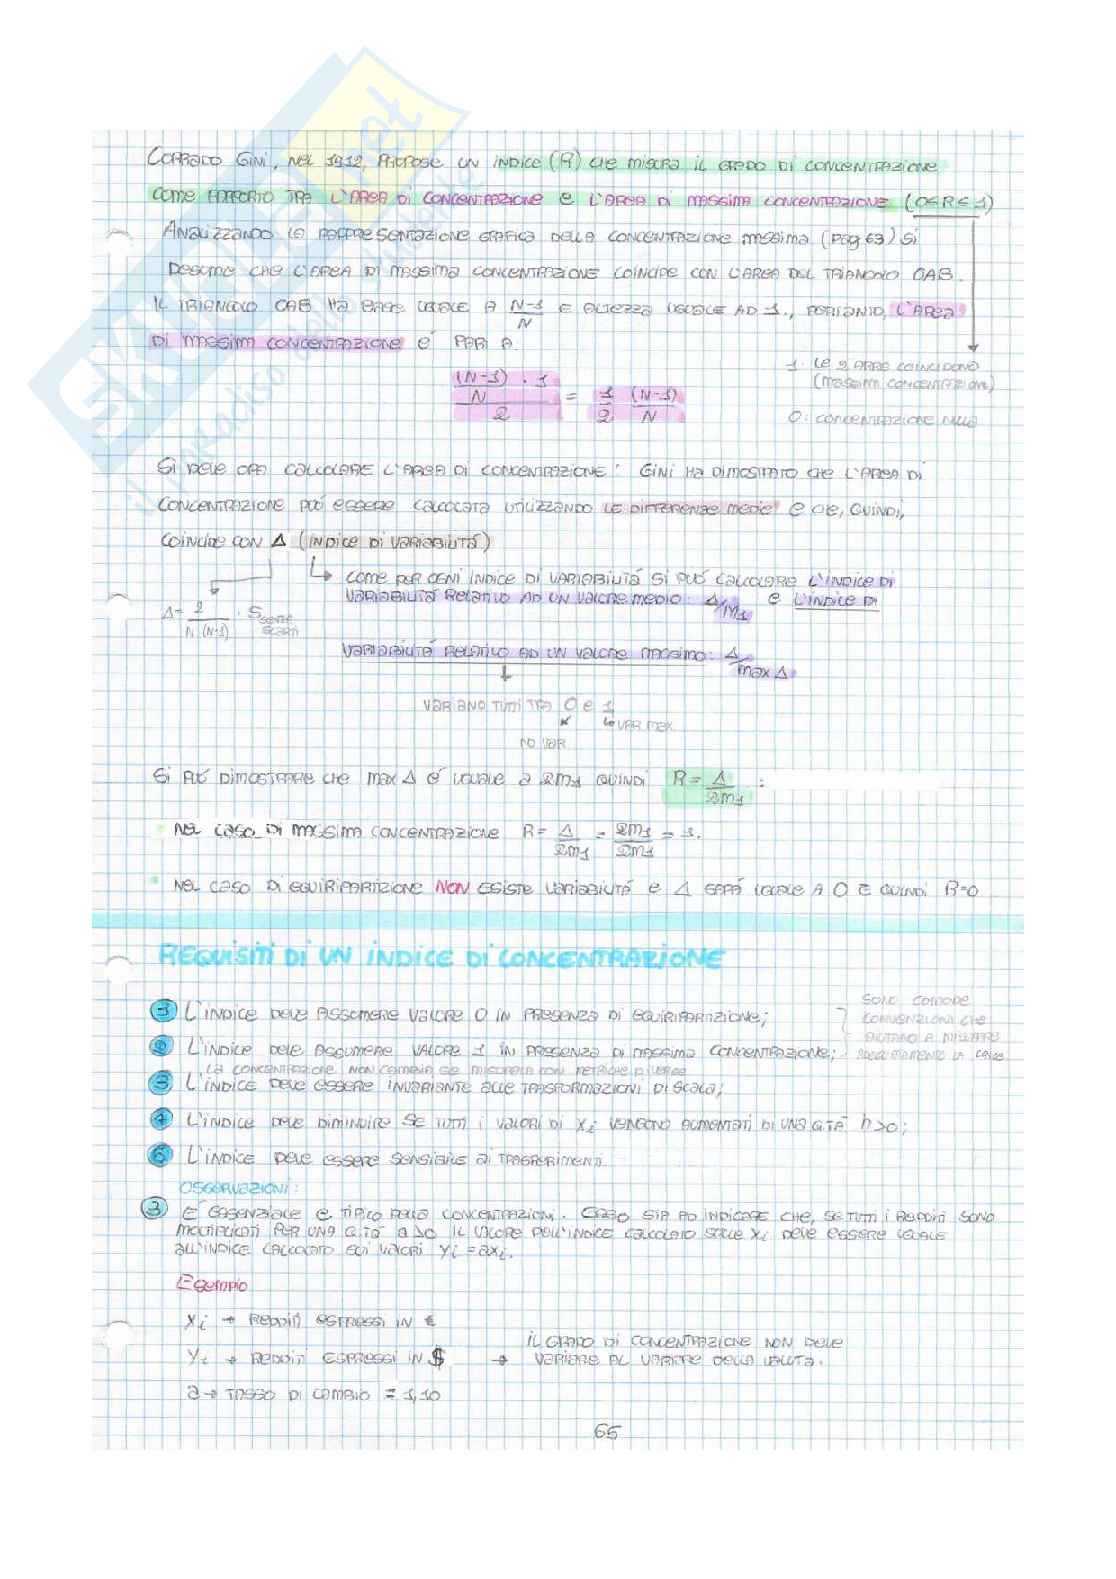 CORRADO GINI, NEL 1912, PROPOSE UN INDICE (R) CHE MISURA IL GRADO DI CONCENTRAZIONE
COME RAPPORTO TRA L'AREA DI CONCENTRAZIONE E L'AREA DI MASSIMA CONCENTRAZIONE (0≤R≤1)
ANALIZZANDO LA RAPPRESENTAZIONE GRAFICA DELLA CONCENTRAZIONE MASSIMA (Pag 63) SI
DESUME CHE L'AREA DI MASSIMA CONCENTRAZIONE COINCIDE CON L'AREA DEL TRIANGOLO OAB.
IL TRIANGOLO OAB HA BASE UGUALE A N-1/N E ALTEZZA UGUALE AD 1., PERTANTO, L'AREA
DI MASSIMA CONCENTRAZIONE É PARI A
1: LE 2 AREE COINCIDONO
(MASSIMA CONCENTRAZIONE)
(N-1)/N · 1 / 2 = 1/2 (N-1)/N
0: CONCENTRAZIONE NULLA
SI DEVE ORA CALCOLARE L'AREA DI CONCENTRAZIONE: GINI HA DIMOSTRATO CHE L'AREA DI
CONCENTRAZIONE PUÓ ESSERE CALCOLATA UTILIZZANDO LE DIFFERENZE MEDIE E CHE, QUINDI,
COINCIDE CON Δ (INDICE DI VARIABILITÁ)
↳ COME PER OGNI INDICE DI VARIABILITÁ SI PUÓ CALCOLARE L'INDICE DI
VARIABILITÁ RELATIVO AD UN VALORE MEDIO: Δ/M1 E L'INDICE DI
Δ = 2/N (N-1) · S
VARIABILITÁ RELATIVO AD UN VALORE MASSIMO: Δ/max Δ
VARIANO TUTTI TRA 0 E 1
↳ VAR MAX
NO VAR
SI PUÓ DIMOSTRARE CHE max Δ É UGUALE A 2M1 QUINDI R = Δ/2M1 :
• NEL CASO DI MASSIMA CONCENTRAZIONE R = Δ/2M1 = 2M1/2M1 = 1.
• NEL CASO DI EQUIRIPARTIZIONE NON ESISTE VARIABILITÁ E Δ SARÁ UGUALE A 0 E QUINDI R=0
REQUISITI DI UN INDICE DI CONCENTRAZIONE
1 L'INDICE DEVE ASSUMERE VALORE 0 IN PRESENZA DI EQUIRIPARTIZIONE;
SONO COMODE
CONVENZIONI CHE
AIUTANO A MISURARE
2 L'INDICE DEVE ASSUMERE VALORE 1 IN PRESENZA DI MASSIMA CONCENTRAZIONE;
LA CONCENTRAZIONE NON CAMBIA SE MISURATA CON METRICHE DIVERSE
3 L'INDICE DEVE ESSERE INVARIANTE ALLE TRASFORMAZIONI DI SCALA;
4 L'INDICE DEVE DIMINUIRE SE TUTTI I VALORI DI xi VENGONO AUMENTATI DI UNA Q.TÁ h>0;
5 L'INDICE DEVE ESSERE SENSIBILE AI TRASFERIMENTI
OSSERVAZIONI:
3 E' ESSENZIALE E TIPICO DELLA CONCENTRAZIONE. ESSO STA AD INDICARE CHE, SE TUTTI I REDDITI SONO
MOLTIPLICATI PER UNA Q.TÁ a>0 IL VALORE DELL'INDICE CALCOLATO SULLE xi DEVE ESSERE UGUALE
ALL'INDICE CALCOLATO SUI VALORI yi = axi.
Esempio
xi → REDDITI ESPRESSI IN €
yi → REDDITI ESPRESSI IN $ → IL GRADO DI CONCENTRAZIONE NON DEVE
VARIARE AL VARIARE DELLA VALUTA.
a → TASSO DI CAMBIO = 1,10
65
SKUOLA.net
il paradiso dello studente